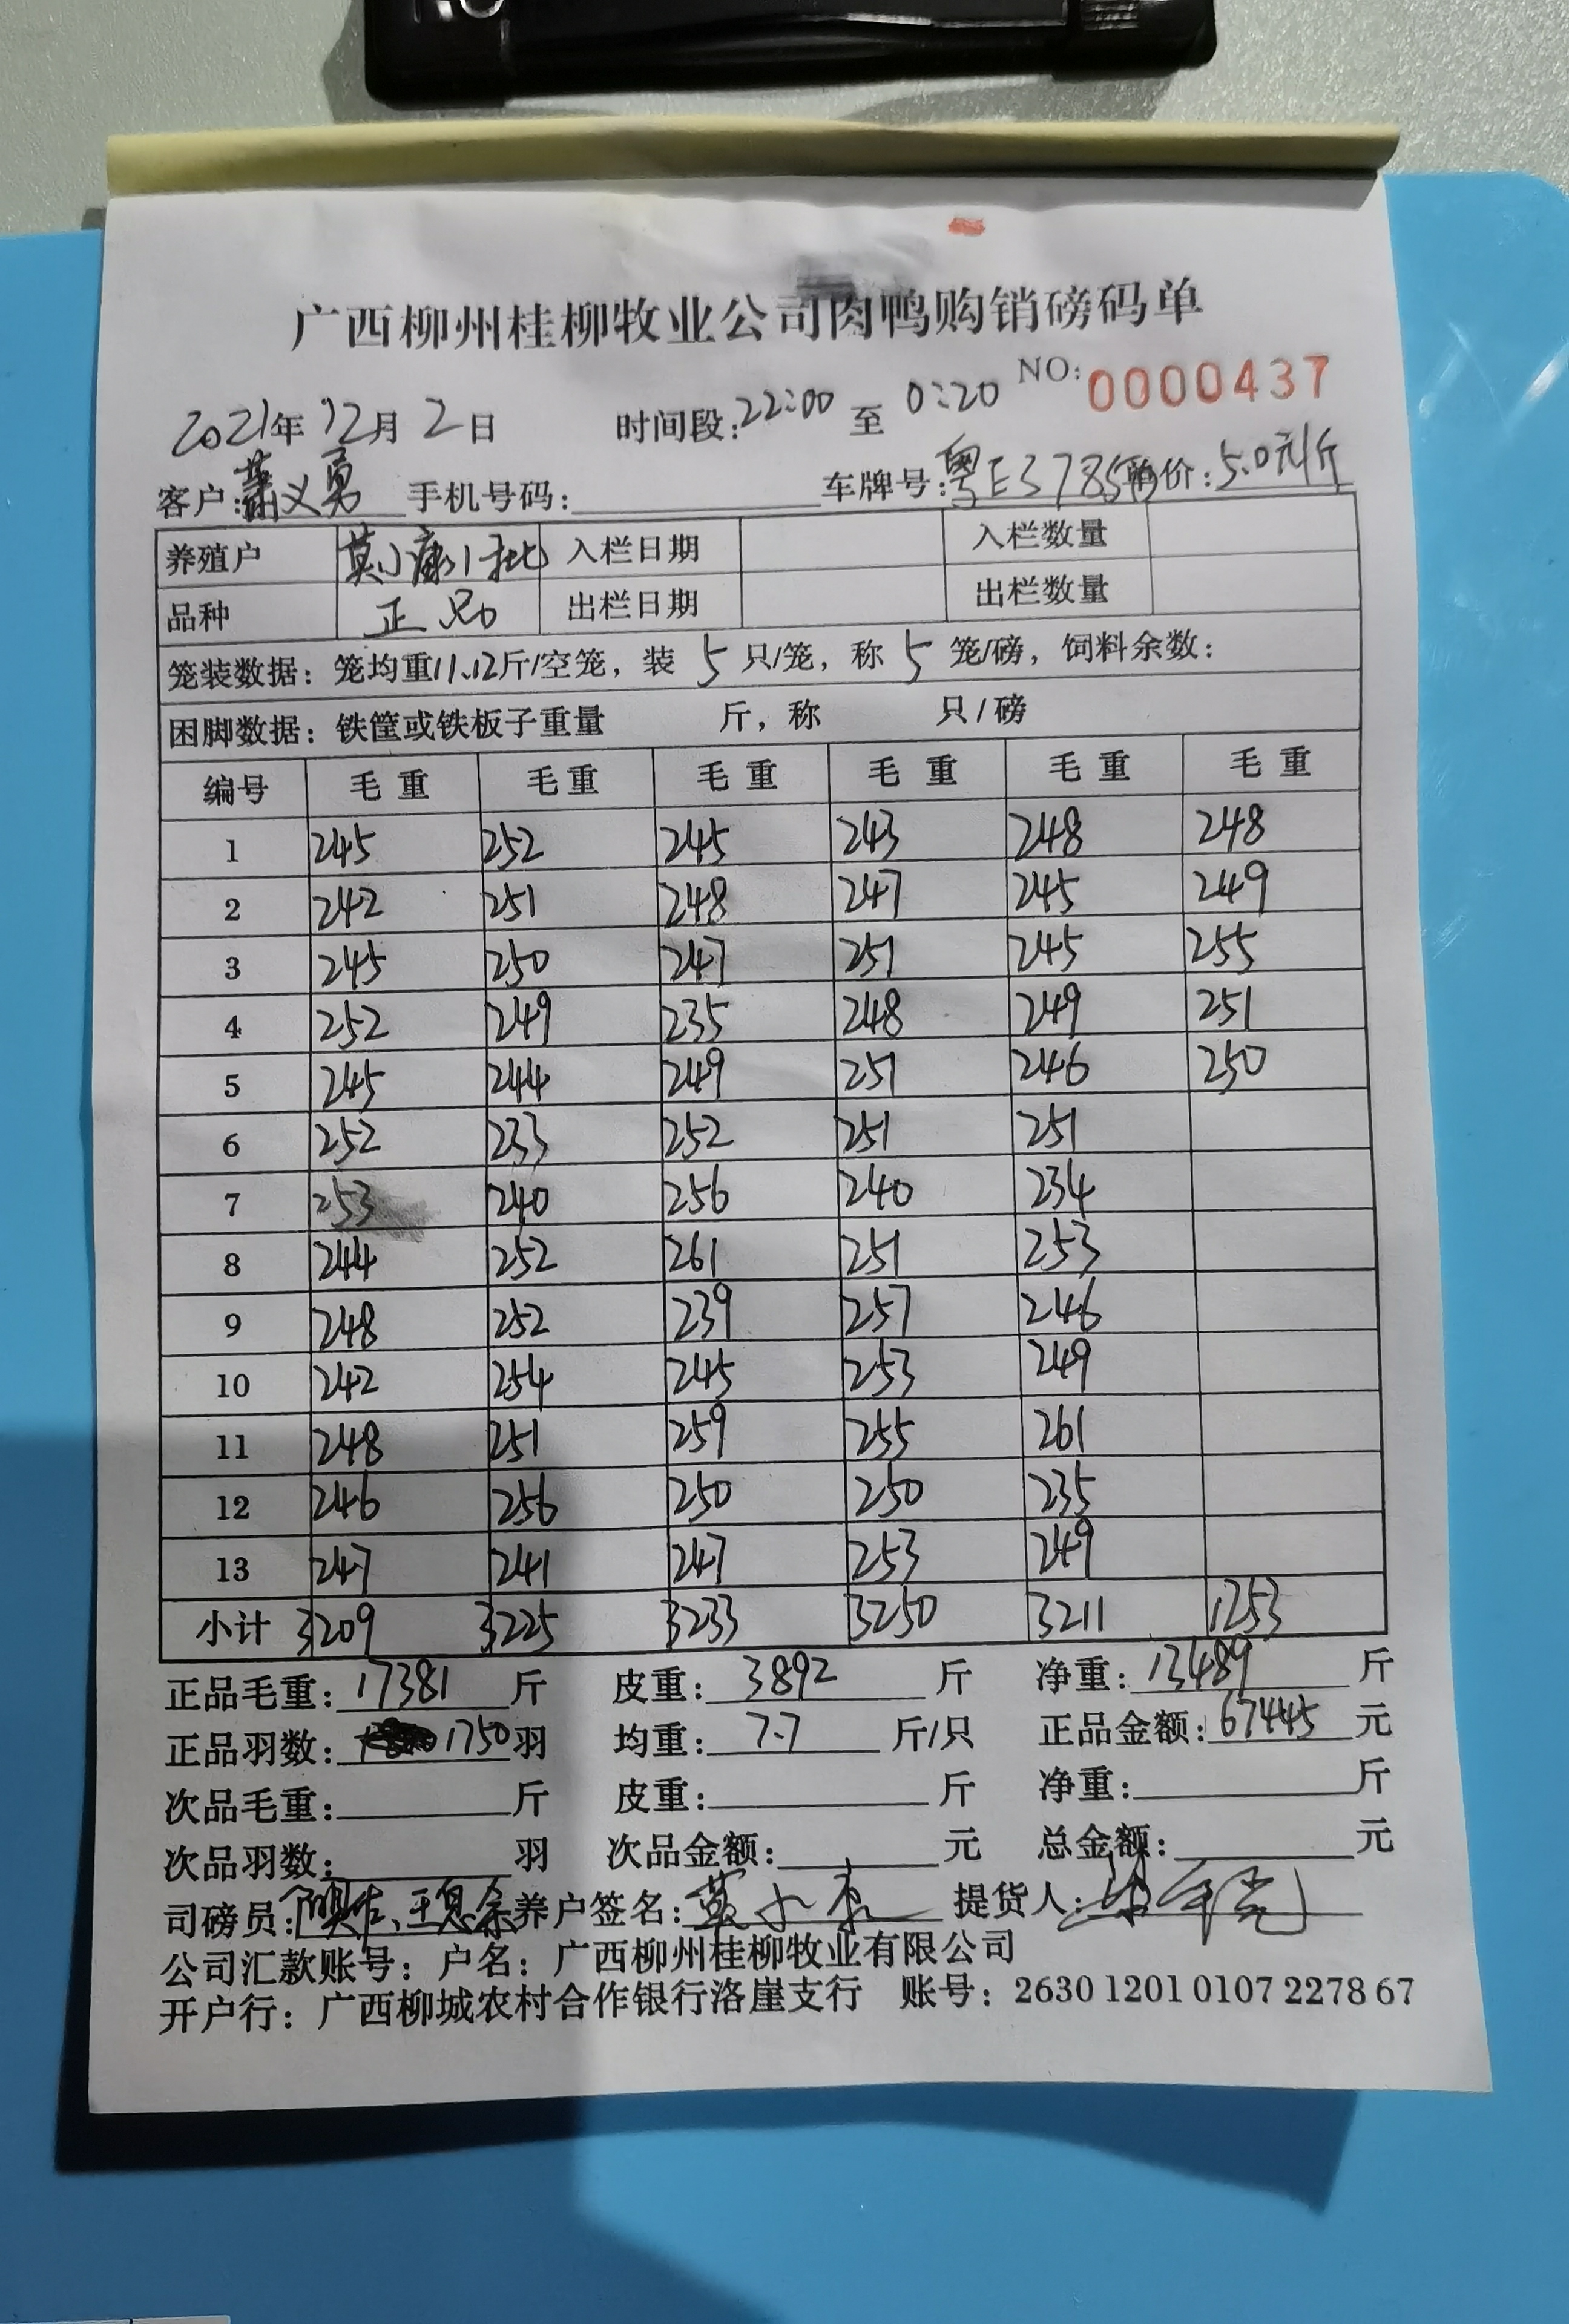 广西柳州桂柳牧业公司肉鸭购销磅码单
NO: 0000437
2021年12月2日 时间段:22:00 至 0:20
客户:萧义勇 手机号码: 车牌号:粤E3785 单价:5.0元/斤
养殖户 莫小康小批 入栏日期 入栏数量
品种 正品 出栏日期 出栏数量
笼装数据：笼均重11.12斤/空笼，装 5 只/笼，称 5 笼/磅，饲料余数：
困脚数据：铁筐或铁板子重量 斤，称 只/磅
编号 毛重 毛重 毛重 毛重 毛重 毛重
1 245 252 245 243 248 248
2 242 251 248 247 245 249
3 245 250 247 251 245 255
4 252 249 235 248 249 251
5 245 244 249 251 246 250
6 252 233 252 251 251
7 253 240 256 240 234
8 244 252 261 251 253
9 248 252 239 257 246
10 242 254 245 253 249
11 248 251 259 255 261
12 246 256 250 250 235
13 247 241 247 253 249
小计 3209 3225 3233 3250 3211 1253
正品毛重: 17381 斤 皮重: 3892 斤 净重: 13489 斤
正品羽数: 1750 羽 均重: 7.7 斤/只 正品金额: 67445 元
次品毛重: 斤 皮重: 斤 净重: 斤
次品羽数: 羽 次品金额: 元 总金额: 元
司磅员: 养户签名: 莫小康 提货人:
公司汇款账号：户名：广西柳州桂柳牧业有限公司
开户行：广西柳城农村合作银行洛崖支行 账号：2630 1201 0107 2278 67